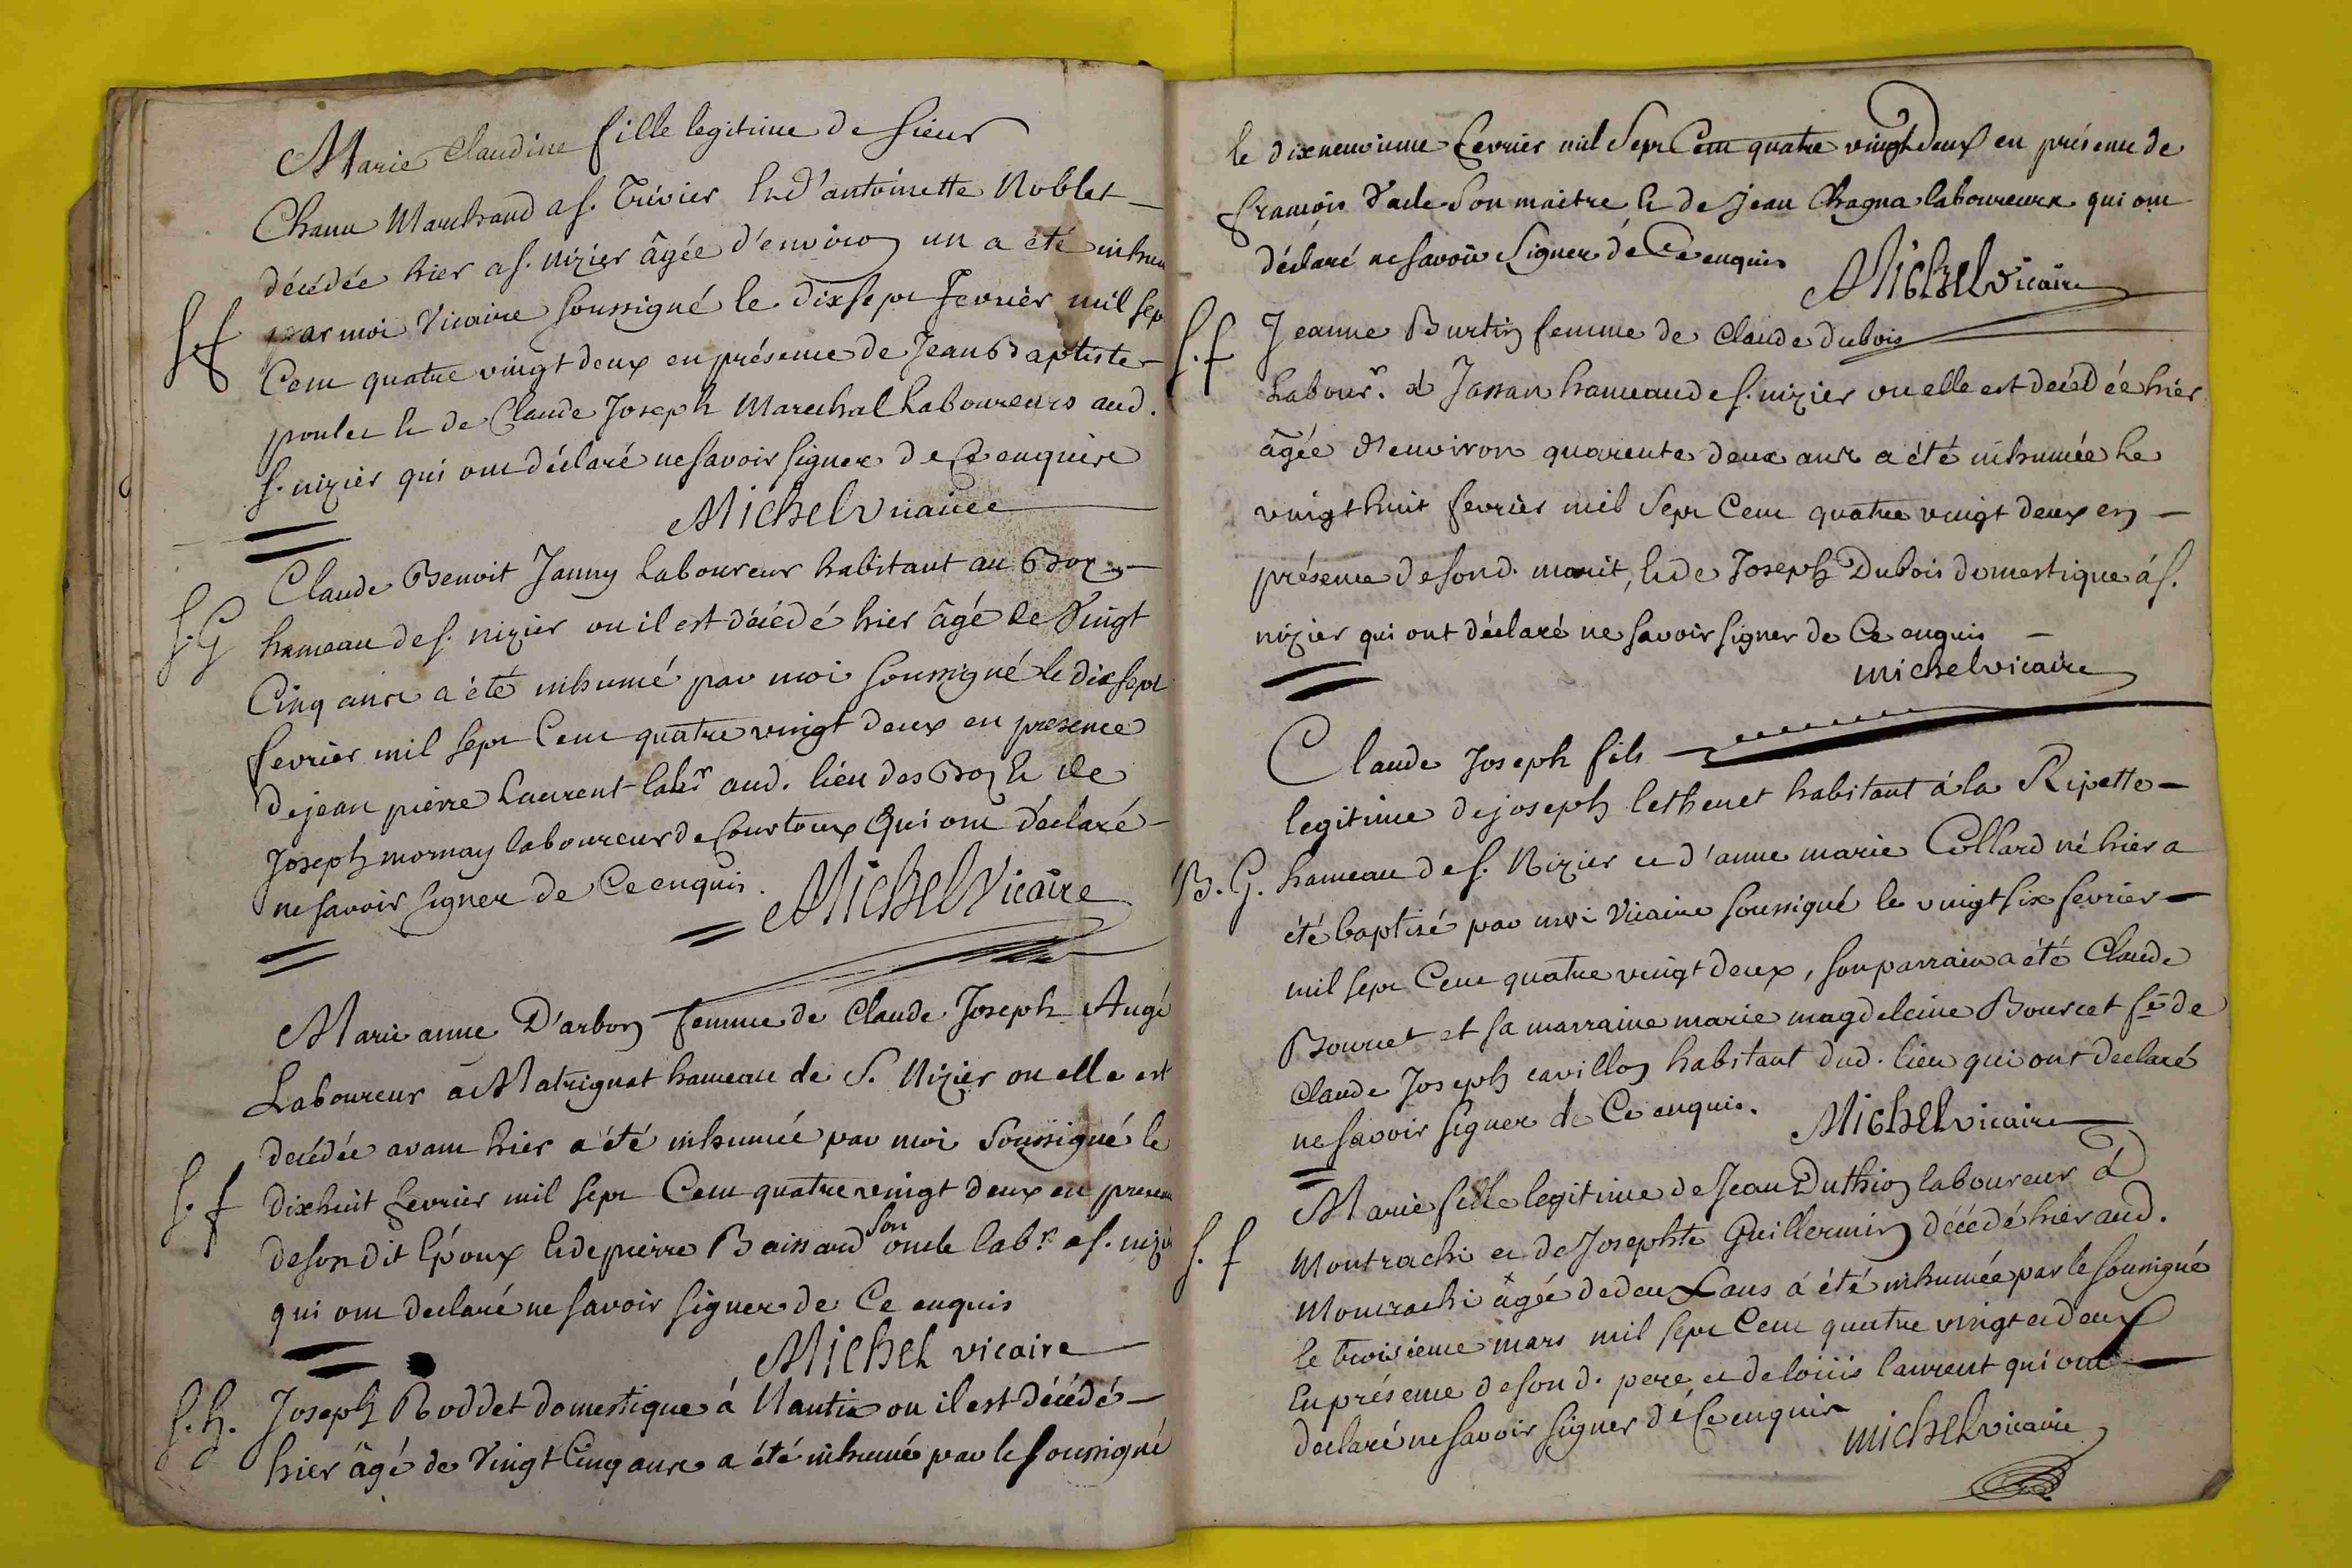 Marie Claudine fille legitime de sieur
Chanu Marchand a s. Trivier Et d'antoinette Noblet
décédée hier a s. nizier âgée d'environ un a été inhumé
S.f par moi Vicaire soussigné le dixsept fevrier mil sep
Cent quatre vingt deux en présence de Jean Baptiste
poulet Et de Claude Joseph Marechal Laboureurs aud.
s. nizier qui ont déclaré ne savoir signer de Ce enquis
Michel vicaire
Claude Benoit Janny Laboureur habitant au
S.G hameau de s. nizier ou il est décédé hier âgé de Vingt
Cinq ans a été inhumé par moi soussigné le dix sept
fevrier mil sept Cent quatre vingt deux en presence
de jean pierre Laurent labr aud. lieu des Et de
Joseph mornay laboureur de Courtoux Qui ont déclaré
ne savoir signer de Ce enquis.
Michel Vicaire
Marie anne D'arbon femme de Claude Joseph Augé
Laboureur a Matrignat hameau de S. Nizier ou elle est
décédée avant hier a été inhumée par moi Soussigné le
S.f dixhuit fevrier mil sept Cent quatre vingt deux en presence
de son dit Epoux Et de pierre Baissard son oncle labr. a s. nizier
qui ont declaré ne savoir signer de Ce enquis
Michel vicaire
S.h. Joseph Boddet domestique á Nantix ou il est décédé
hier âgé de Vingt Cinq ans a été inhumé par le soussigné
le dixneuvieme fevrier mil Sept Cent quatre vingt deux en présence de
francois Son maitre Et de Jean Chagna laboureurs qui ont
déclaré ne savoir Signer de Ce enquis
Michel vicaire
S.f Jeanne Burtin femme de Claude dubois
Labour. à Jassan hameau de s. nizier ou elle est décédée hier
âgée d'environ quarente deux ans a été inhumée Le
vingt huit fevrier mil Sept Cent quatre vingt deux en
présence de son d. marit, Et de Joseph Dubois domestique á s.
nizier qui ont déclaré ne savoir signer de Ce enquis
michel vicaire
Claude Joseph fils
legitime de joseph lethenet habitant á la Ripette
B.G. hameau de s. Nizier et d'anne marie Collard né hier a
été baptisé par moi Vicaire soussigné le vingt six fevrier
mil sept Cent quatre vingt deux, son parrain a été Claude
Bourcet et sa marraine marie magdeleine Bourcet fe de
Claude Joseph cavillon habitant dud. lieu qui ont declaré
ne savoir signer de Ce enquis.
Michel vicaire
Marie fille legitime de Jean Duthion laboureur à
S.f Montrachi et de Josephte Guillermin décédé hier aud.
Montrachi âgée de deux ans a été inhumée par le soussigné
le troisieme mars mil sept Cent quatre vingt et deux
En présence de son d. pere et de loüis laurent qui ont
declaré ne savoir signer de Ce enquis
michel vicaire